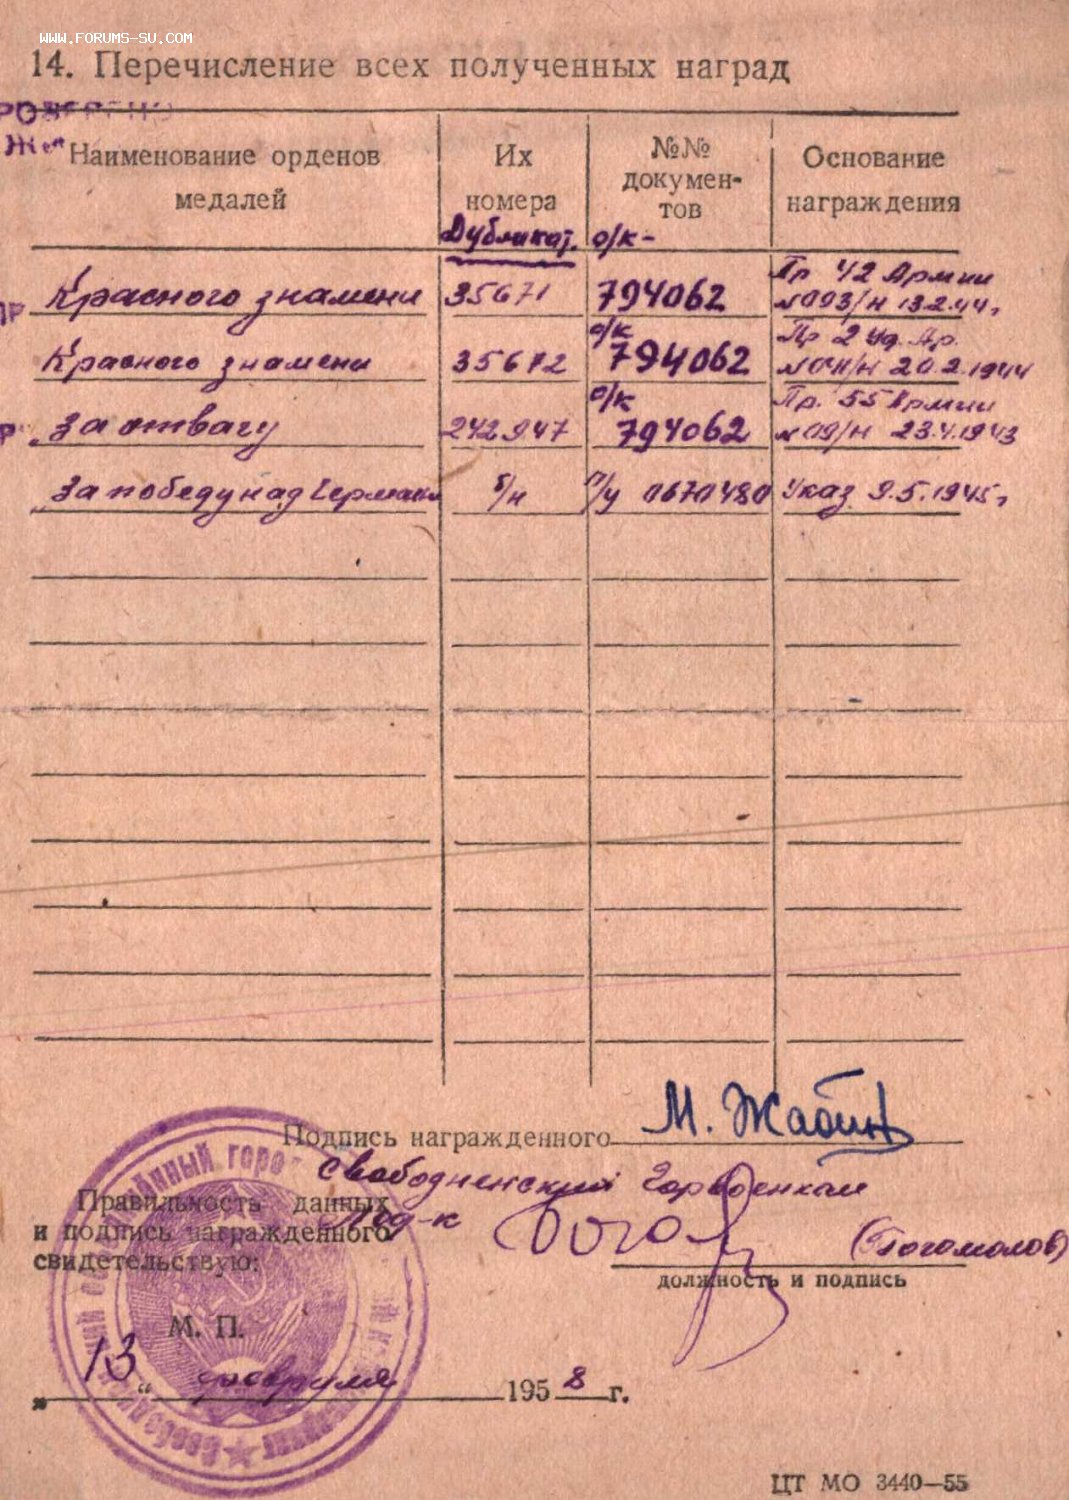 WWW.FORUMS-SU.COM
14. Перечисление всех полученных наград
Наименование орденов медалей
Их номера
№№ докумен-тов
Основание награждения
Дубликат. о/к-
Красного знамени 35671 794062 Пр 42 Армии №093/н 13.2.44г.
Красного знамени 35672 о/к 794062 Пр 2 Уд. Ар. 20.2.1944
За отвагу 242947 о/к 794062 Пр. 55 Армии №09/н 23.4.1943
За победу над Германи б/н П/у 0670480 Указ 9.5.1945г
Подпись награжденного М. Жабин
Свободненский Горвоенком
Правильность данных
и подпись награжденного Под-к
свидетельствую: (Богомолов)
должность и подпись
М. П.
„13“ февраля 1958 г.
ЦТ МО 3440—55